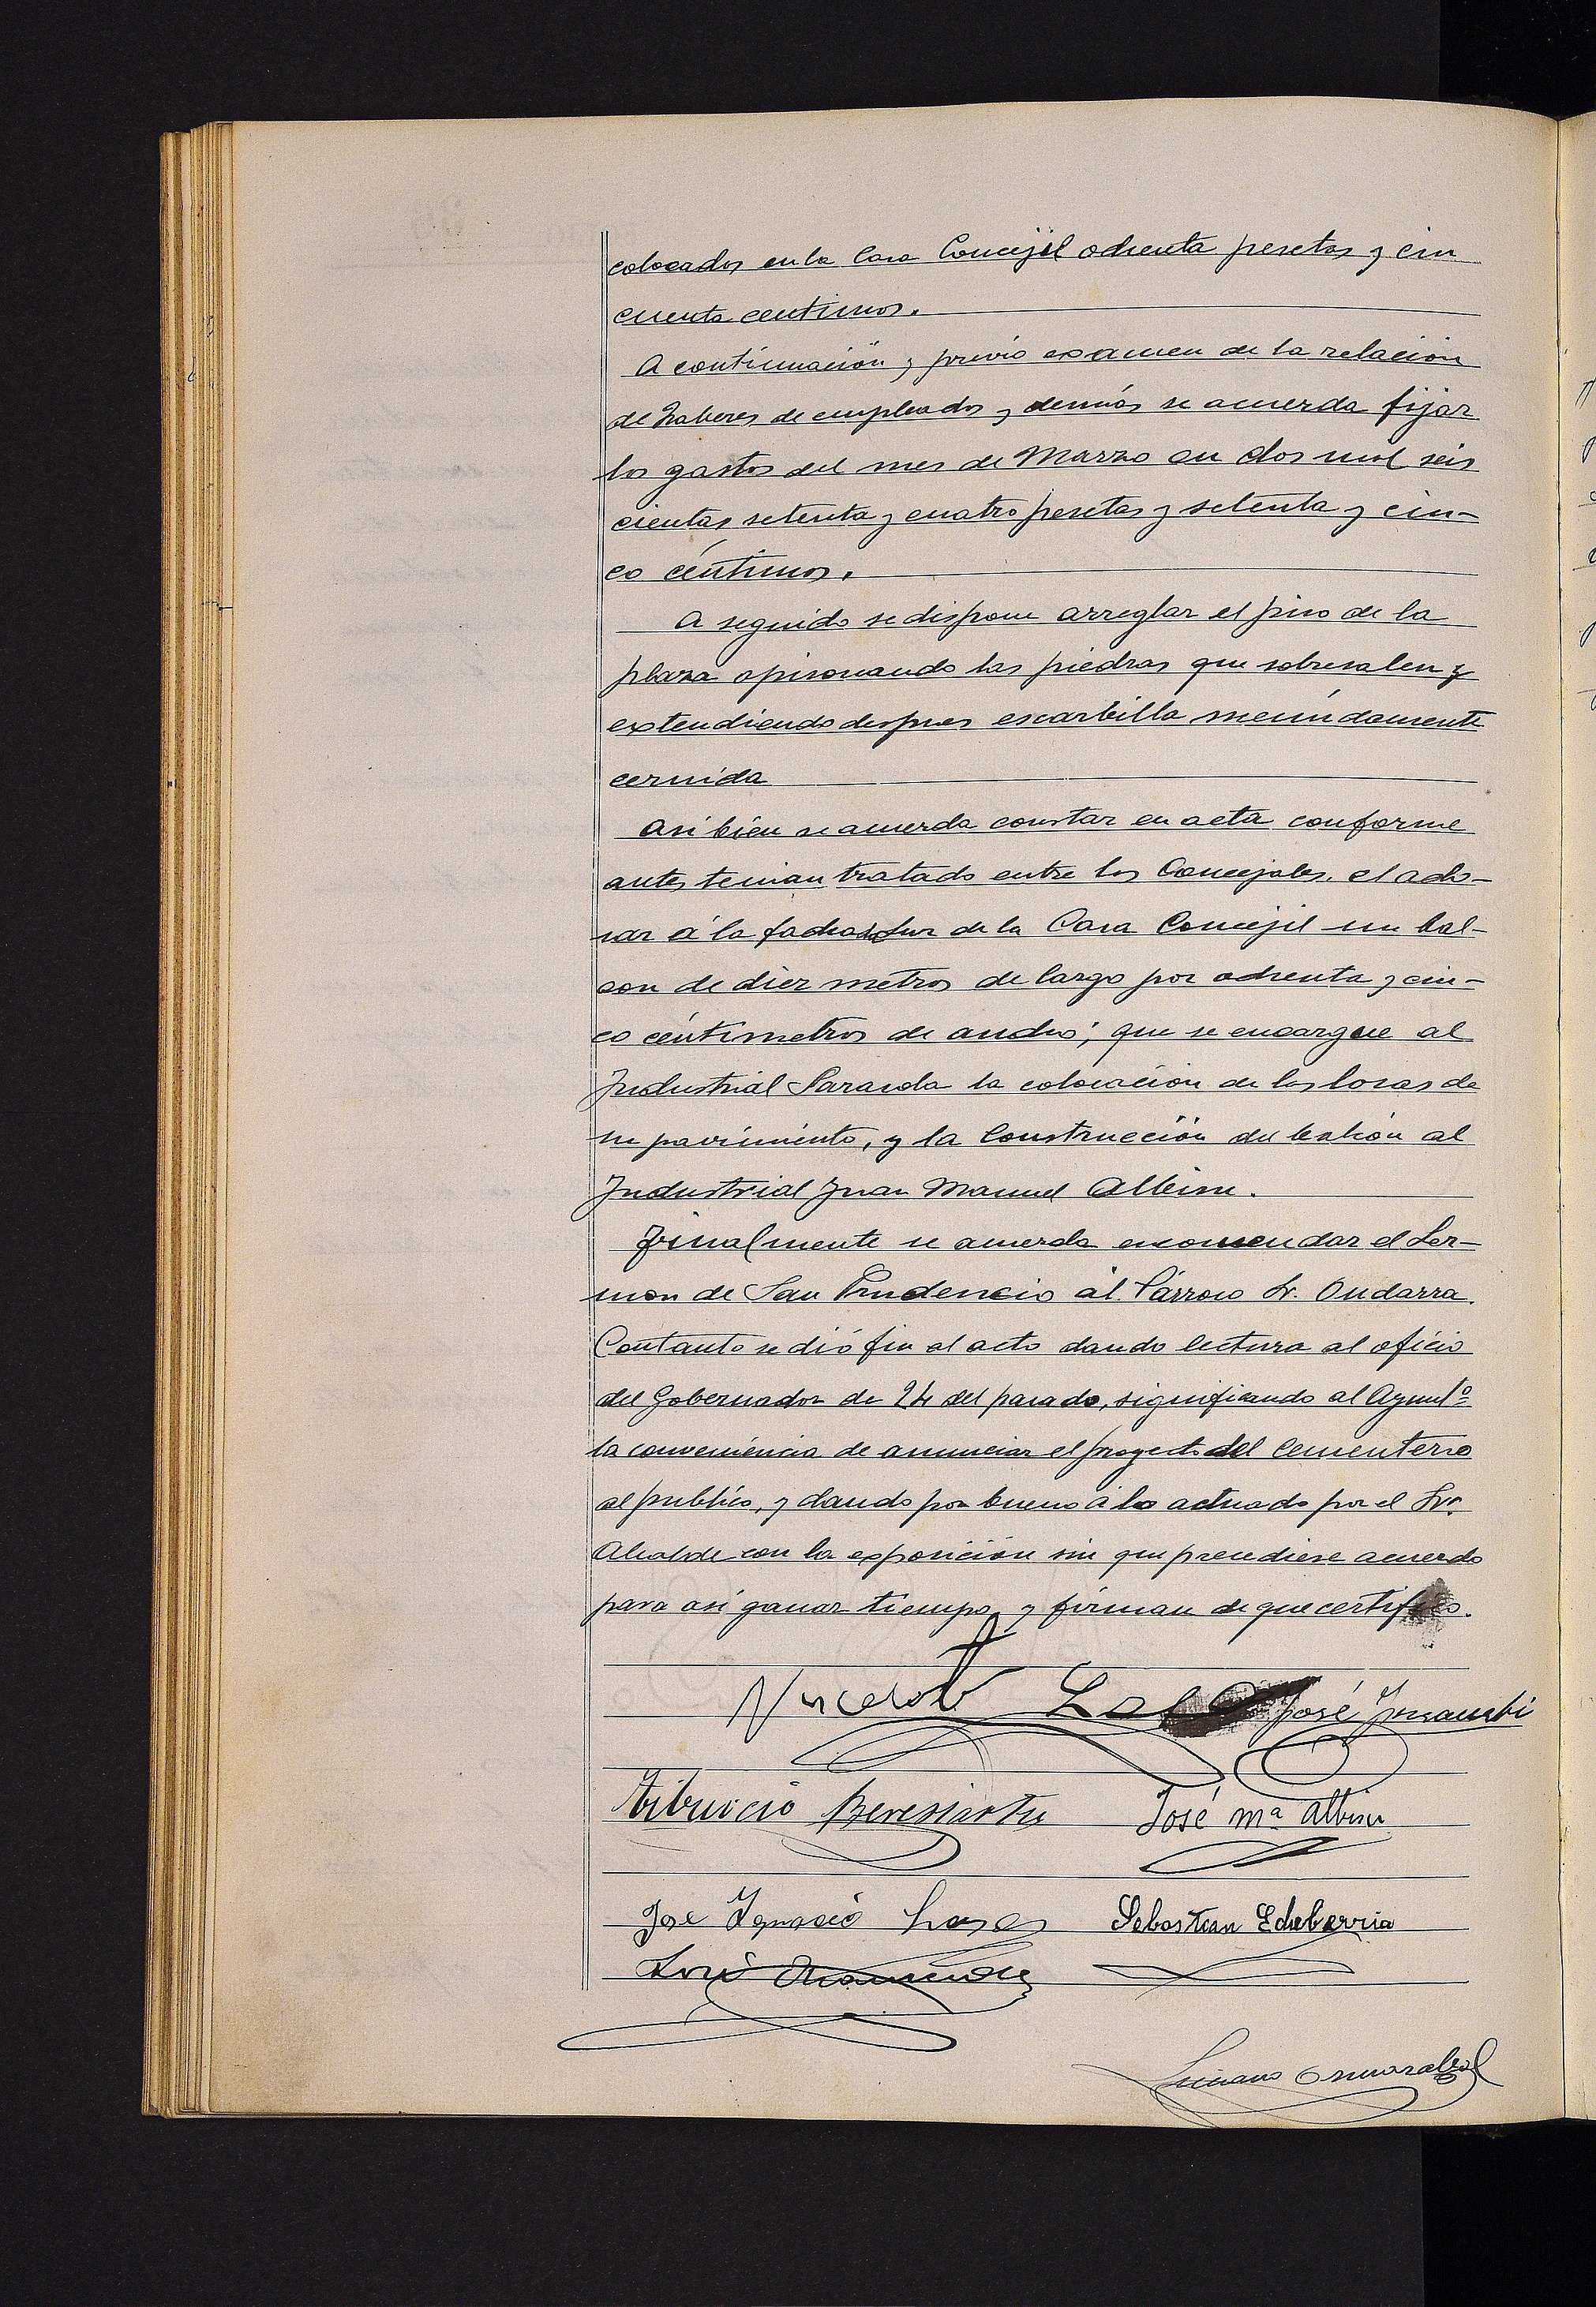 colocados en la Casa Concejil ochenta pesetas y cin
cuenta centimos.
A continuación y previo examen de la relación
de haberes de empleados y demás se acuerda fijar
los gastos del mes de Marzo en dos mil seis
cientas setenta y cuatro pesetas y setenta y cin-
co céntimos.
A seguido se dispone arreglar el piso de la
plaza apisonando las piedras que sobresalen y
extendiendo despues escarbilla menúdamente
cernida
Asi bien se acuerda constar en acta conforme
antes tenian tratado entre los Concejales, el ado-
nar á la fachada Sur de la Casa Concejil un bal-
con de diez metros de largo por ochenta y cin-
co céntimetros de ancho; que se encargue al
Industrial Sarasola la colocación de las losas de
su pavimiento, y la Construcción del balcón al
Industrial Juan Manuel Albisu.
Finalmente se acuerda encomendar el Ser-
mon de San Prudencio al Párroco Sr. Ondarra.
Contanto se dió fin al acto dando lectura al oficio
del Gobernador de 24 del pasado, significando al Ayuntº
la conveniencia de anunciar el proyecto del Cementerio
al publico, y dando por bueno á lo actuado por el Sr.
Alcalde con la exposición sin que precediese acuerdo
para asi ganar tiempo y firman de que certifico.
José
Tiburcio Beresiartu José Mª Albisu
Jose Ignacio Lasa Sebastian Echeberria
José
Luciano